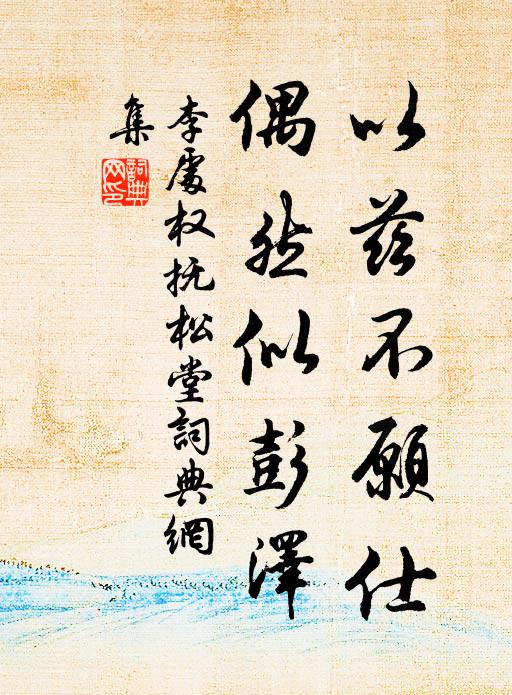 以兹不願仕
偶然似彭澤
李處权抚松堂詞典網
集
詞典
网印